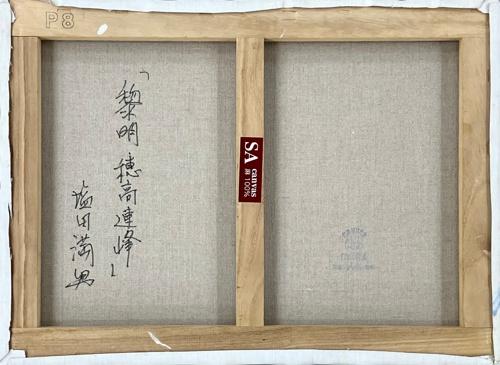 P8
「黎明 穂高連峰」
塩田満男
SA canvas
麻 100%